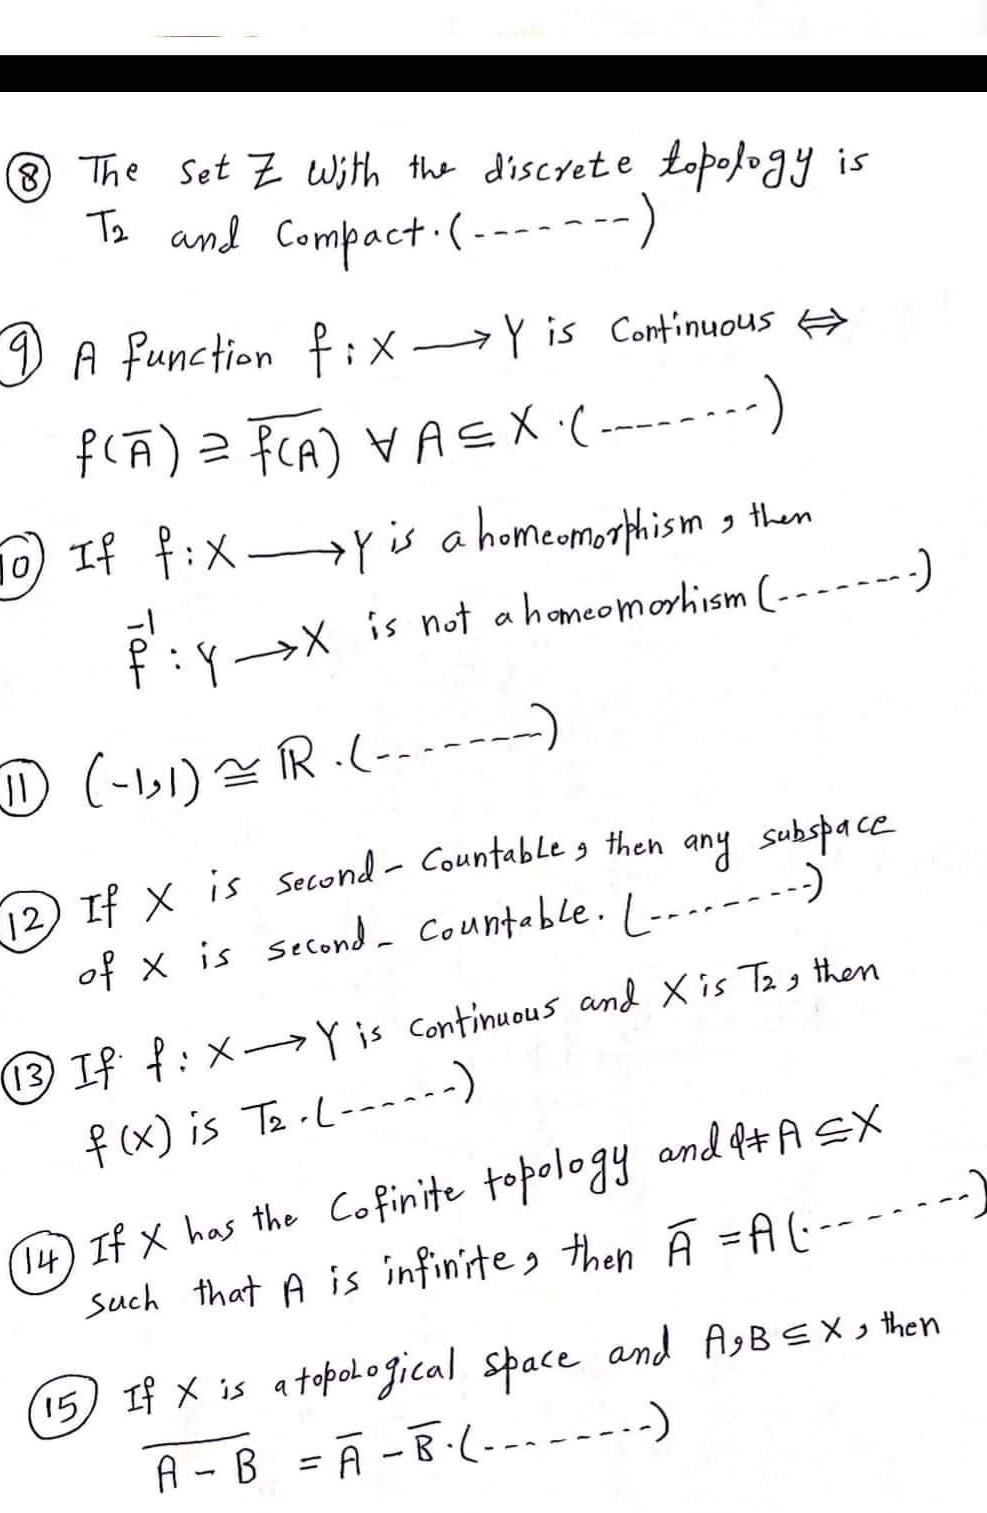 ⑧ The set Z with the discrete topology is
T₂ and Compact. (--------)
⑨ A function f : X ⟶ Y is Continuous ⇔
f(A̅) ⊇ \overline{f(A)} ∀ A ⊆ X. (--------)
⑩ If f : X ⟶ Y is a homeomorphism, then
f⁻¹ : Y ⟶ X is not a homeomorhism (--------)
⑪ (-1,1) ≅ ℝ. (--------)
⑫ If X is second - Countable, then any subspace
of X is second - Countable. (--------)
⑬ If f : X ⟶ Y is Continuous and X is T₂, then
f(X) is T₂. (------)
⑭ If X has the Cofinite topology and φ ≠ A ⊆ X
such that A is infinite, then A̅ = A (--------)
⑮ If X is a topological space and A, B ⊆ X, then
\overline{A - B} = A̅ - B̅. (--------)